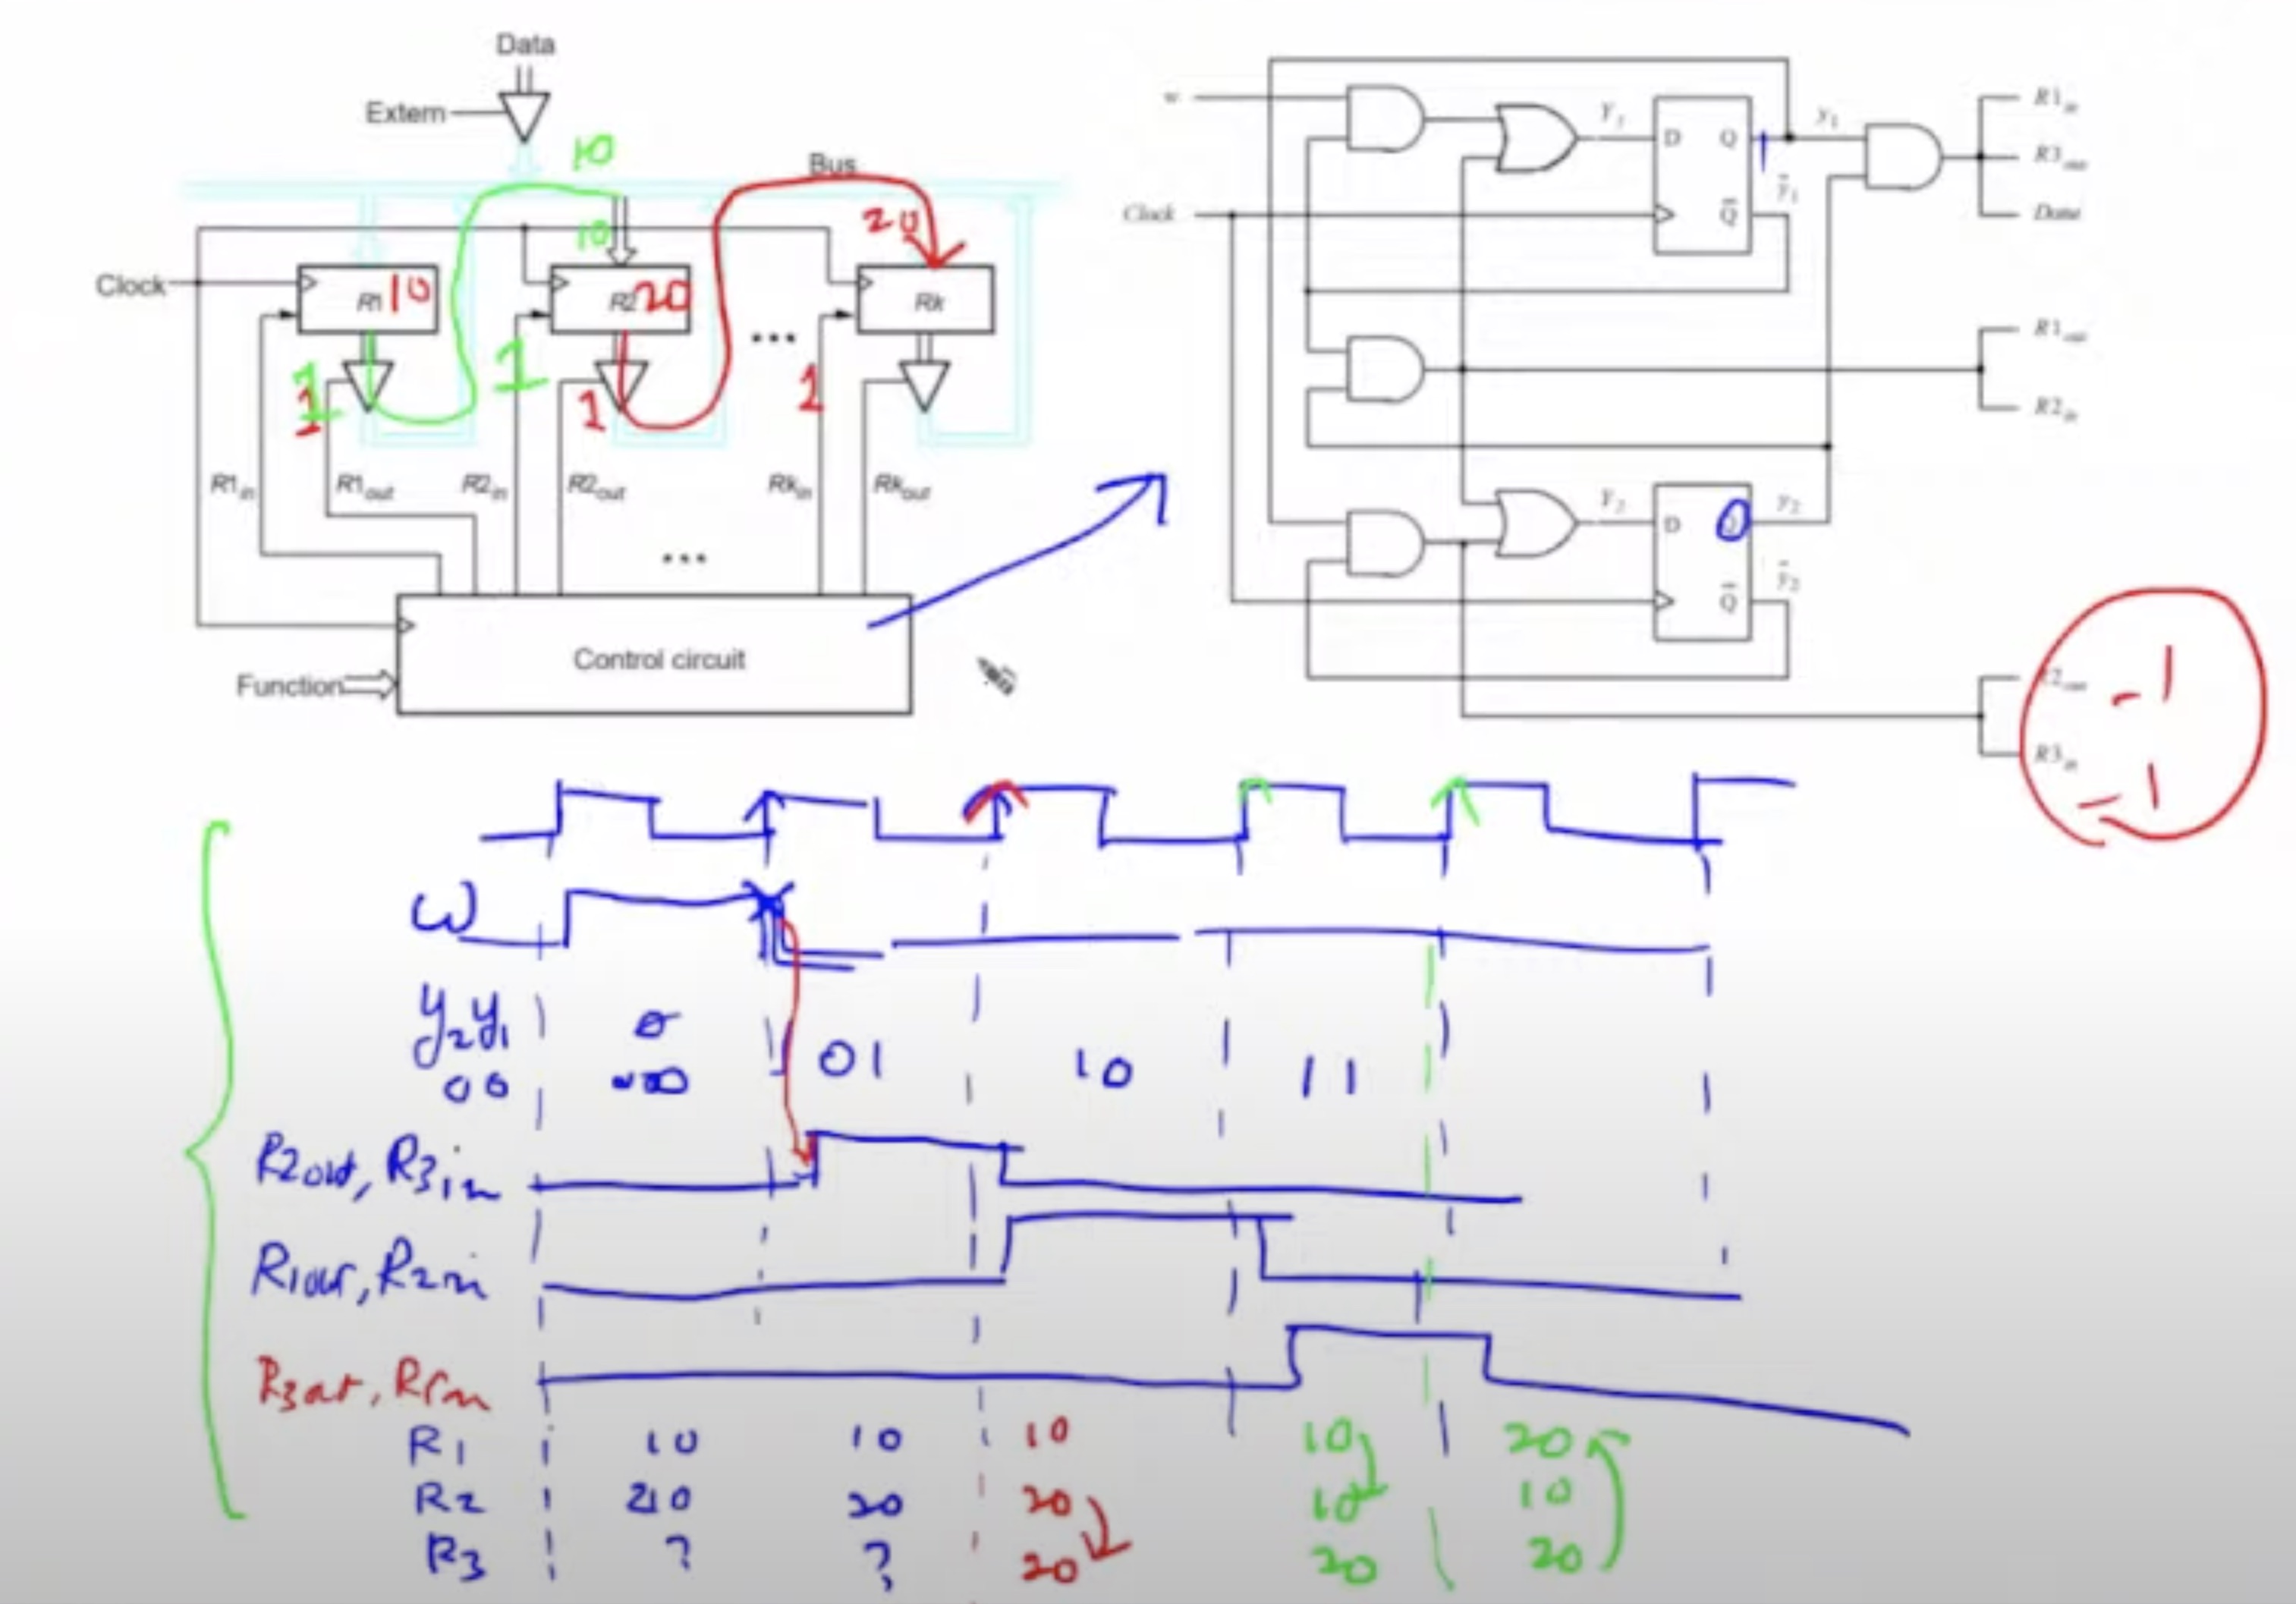 Data
Extern
10
Bus
10
20
Clock
R1 10
R2 20
Rk
...
1
1
1
1
1
R1in
R1out
R2in
R2out
Rkin
Rkout
...
Control circuit
Function
w
Clock
Y1
D
Q
1
y1
ȳ1
Q̄
R1in
R3out
Done
R1out
R2in
Y2
D
0
y2
ȳ2
Q̄
-1
R3in
-1
ω
y2y1
00
01
10
11
R2out, R3in
R1out, R2in
R3out, R1in
R1 10 10 10 10 20
R2 20 20 10 10
R3 ? ? 20 20 20